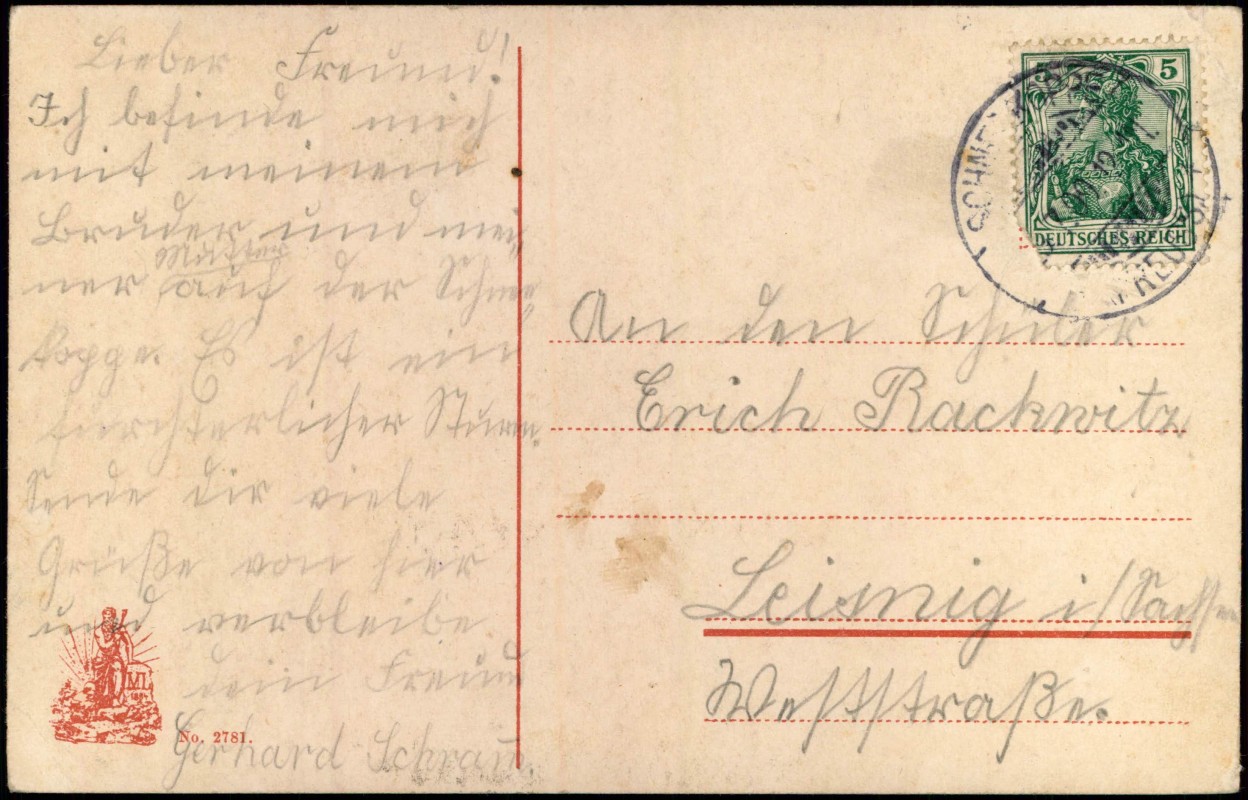 Lieber Freund!
Ich befinde mich
mit meinem
Bruder und mei-
Mutter
ner auf der Schnee
koppe. Es ist ein
fürchterlicher Sturm.
Sende dir viele
Grüße von hier
und verbleibe
dein Freund
Gerhard Schram
No. 2781.
ML
5 5
DEUTSCHES REICH
An den Schüler
Erich Rackwitz
Leisnig i/Sachsen
Weststraße.